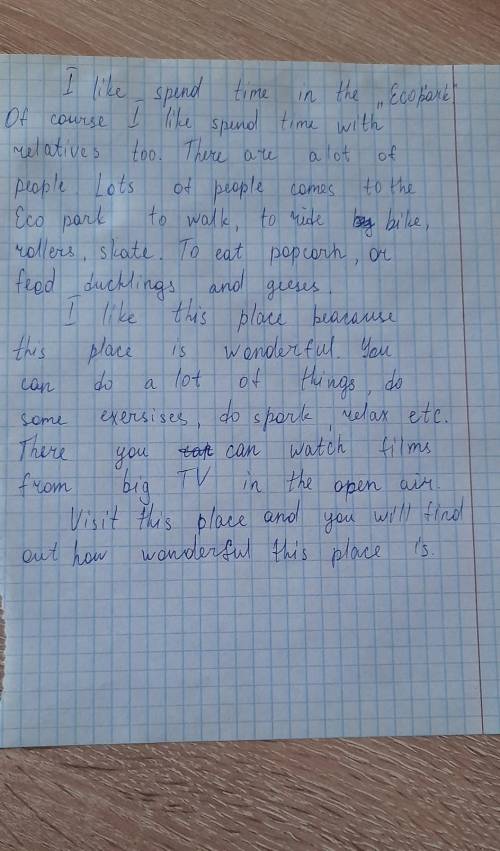 I like spend time in the „Ecopark"
Of course I like spend time with
relatives too. There are a lot of
people. Lots of people comes to the
Eco park to walk, to ride bike,
rollers, skate. To eat popcorn, or
feed ducklings and geeses.
I like this place beacause
this place is wonderful. You
can do a lot of things, do
some exersises, do spork, relax etc.
There you can watch films
from big TV in the open air.
Visit this place and you will find
out how wonderful this place is.